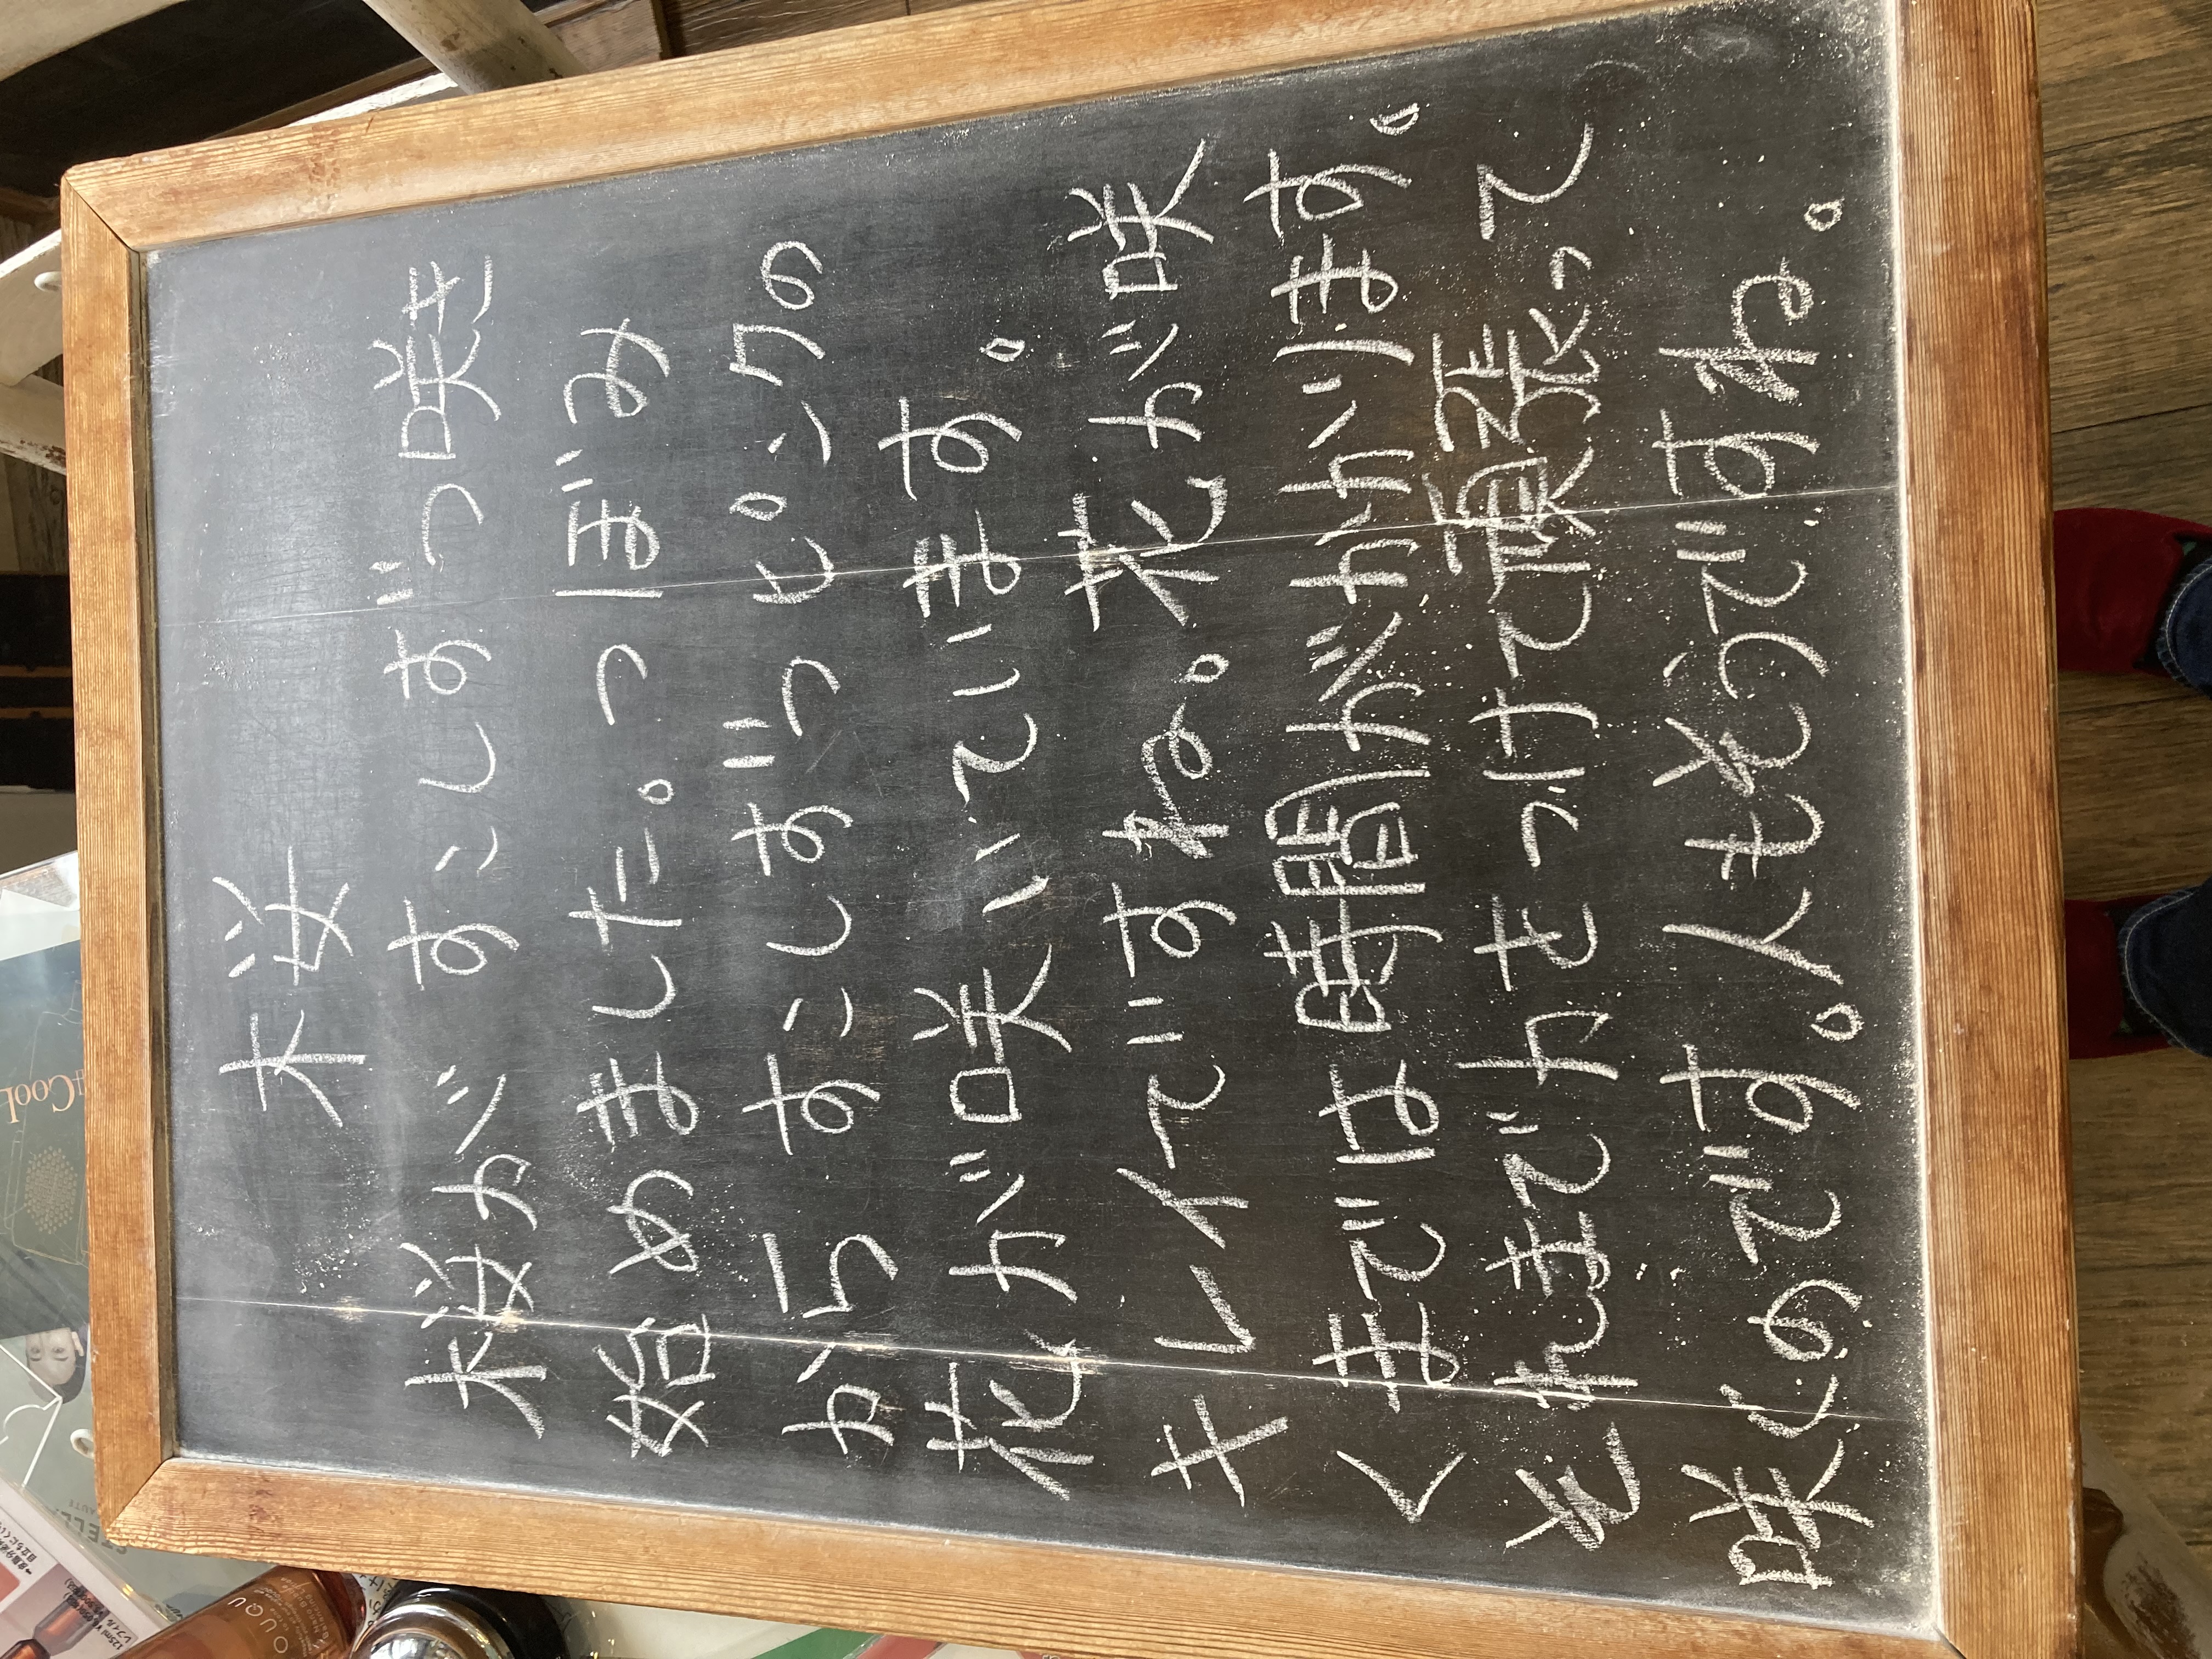 桜
桜がすこしずつ咲き
始めました。つぼみ
からすこしずつピンクの
花が咲いています。
キレイですね。花が咲
くまでは時間がかかります。
それまで力をつけて頑張って
咲くのです。人もそうですね。
#CooL